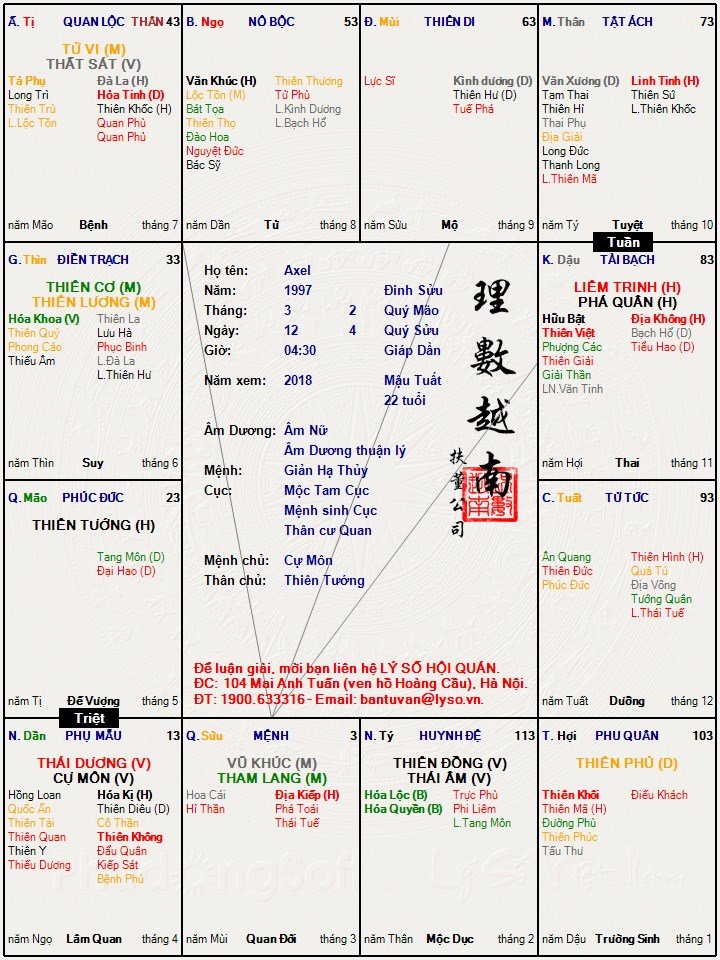 Ấ. Tị QUAN LỘC THÂN 43
TỬ VI (M)
THẤT SÁT (V)
Tả Phụ Đà La (H)
Long Trì Hỏa Tinh (D)
Thiên Trù Thiên Khốc (H)
L.Lộc Tồn Quan Phù
Quan Phủ
năm Mão Bệnh tháng 7
B. Ngọ NÔ BỘC 53
Văn Khúc (H) Thiên Thương
Lộc Tồn (M) Tử Phù
Bát Tọa L.Kình Dương
Thiên Thọ L.Bạch Hổ
Đào Hoa
Nguyệt Đức
Bác Sỹ
năm Dần Tử tháng 8
Đ. Mùi THIÊN DI 63
Lực Sĩ Kình dương (D)
Thiên Hư (D)
Tuế Phá
năm Sửu Mộ tháng 9
M. Thân TẬT ÁCH 73
Văn Xương (D) Linh Tinh (H)
Tam Thai Thiên Sứ
Thiên Hỉ L.Thiên Khốc
Thai Phụ
Địa Giải
Long Đức
Thanh Long
L.Thiên Mã
năm Tý Tuyệt tháng 10
Tuần
G. Thìn ĐIỀN TRẠCH 33
THIÊN CƠ (M)
THIÊN LƯƠNG (M)
Hóa Khoa (V) Thiên La
Thiên Quý Lưu Hà
Phong Cáo Phục Binh
Thiếu Âm L.Đà La
L.Thiên Hư
năm Thìn Suy tháng 6
Họ tên: Axel
Năm: 1997 Đinh Sửu
Tháng: 3 2 Quý Mão
Ngày: 12 4 Quý Sửu
Giờ: 04:30 Giáp Dần
Năm xem: 2018 Mậu Tuất
22 tuổi
Âm Dương: Âm Nữ
Âm Dương thuận lý
Mệnh: Giản Hạ Thủy
Cục: Mộc Tam Cục
Mệnh sinh Cục
Thân cư Quan
Mệnh chủ: Cự Môn
Thân chủ: Thiên Tướng
理數越南
扶董公司
Để luận giải, mời bạn liên hệ LÝ SỐ HỘI QUÁN.
ĐC: 104 Mai Anh Tuấn (ven hồ Hoàng Cầu), Hà Nội.
ĐT: 1900.633316 - Email: bantuvan@lyso.vn.
K. Dậu TÀI BẠCH 83
LIÊM TRINH (H)
PHÁ QUÂN (H)
Hữu Bật Địa Không (H)
Thiên Việt Bạch Hổ (D)
Phượng Các Tiểu Hao (D)
Thiên Giải
Giải Thần
LN.Văn Tinh
năm Hợi Thai tháng 11
Q. Mão PHÚC ĐỨC 23
THIÊN TƯỚNG (H)
Tang Môn (D)
Đại Hao (D)
năm Tị Đế Vượng tháng 5
Triệt
C. Tuất TỬ TỨC 93
Ân Quang Thiên Hình (H)
Thiên Đức Quả Tú
Phúc Đức Địa Võng
Tướng Quân
L.Thái Tuế
năm Tuất Dưỡng tháng 12
N. Dần PHỤ MẪU 13
THÁI DƯƠNG (V)
CỰ MÔN (V)
Hồng Loan Hóa Kị (H)
Quốc Ấn Thiên Diêu (D)
Thiên Tài Cô Thần
Thiên Quan Thiên Không
Thiên Y Đẩu Quân
Thiếu Dương Kiếp Sát
Bệnh Phù
năm Ngọ Lâm Quan tháng 4
Q. Sửu MỆNH 3
VŨ KHÚC (M)
THAM LANG (M)
Hoa Cái Địa Kiếp (H)
Hỉ Thần Phá Toái
Thái Tuế
năm Mùi Quan Đới tháng 3
N. Tý HUYNH ĐỆ 113
THIÊN ĐỒNG (V)
THÁI ÂM (V)
Hóa Lộc (B) Trực Phù
Hóa Quyền (B) Phi Liêm
L.Tang Môn
năm Thân Mộc Dục tháng 2
T. Hợi PHU QUÂN 103
THIÊN PHỦ (D)
Thiên Khôi Điếu Khách
Thiên Mã (H)
Đường Phù
Thiên Phúc
Tấu Thư
năm Dậu Trường Sinh tháng 1